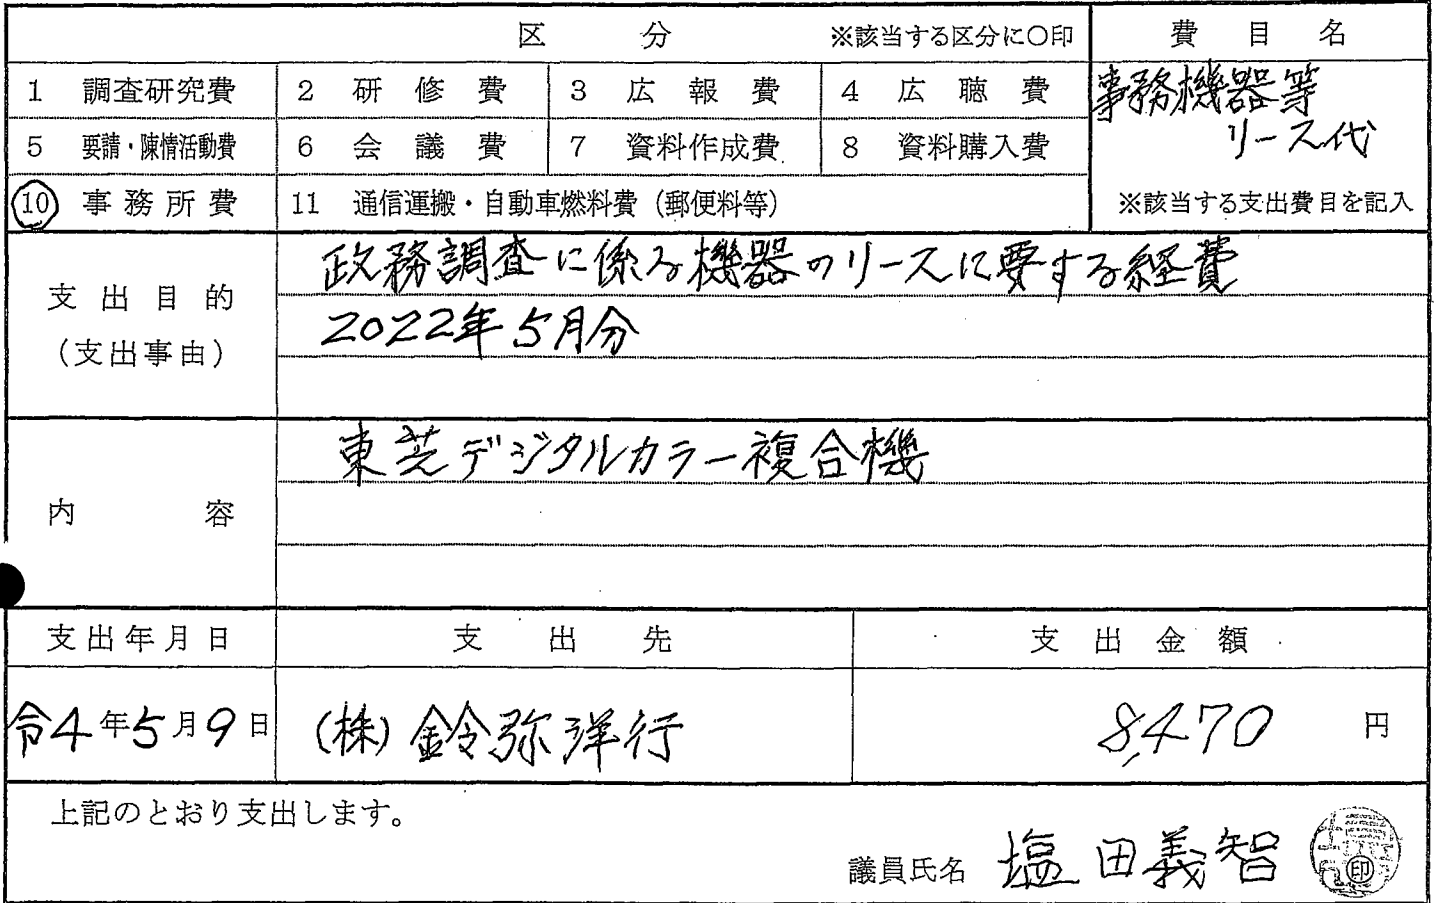 区分 ※該当する区分に○印 費目名
1 調査研究費 2 研修費 3 広報費 4 広聴費 事務機器等
リース代
5 要請・陳情活動費 6 会議費 7 資料作成費 8 資料購入費
10 事務所費 11 通信運搬・自動車燃料費（郵便料等） ※該当する支出費目を記入
支出目的
（支出事由）
政務調査に係る機器のリースに要する経費
2022年5月分
内容
東芝デジタルカラー複合機
支出年月日 支出先 支出金額
令4年5月9日 (株)鈴弥洋行 8,470 円
上記のとおり支出します。
議員氏名 塩田義智 印